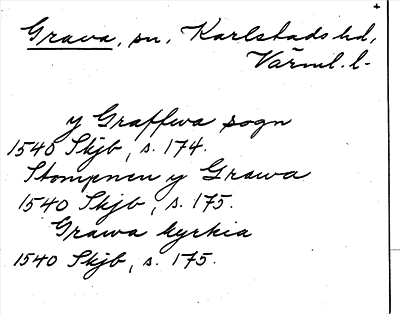 Grava, sn, Karlstads hd,
Värml. l.
y Graffwa sogn
1540 Skjb, s. 174.
Stompnen y Grawa
1540 Skjb, s. 175.
Grawa kyrkia
1540 Skjb, s. 175.